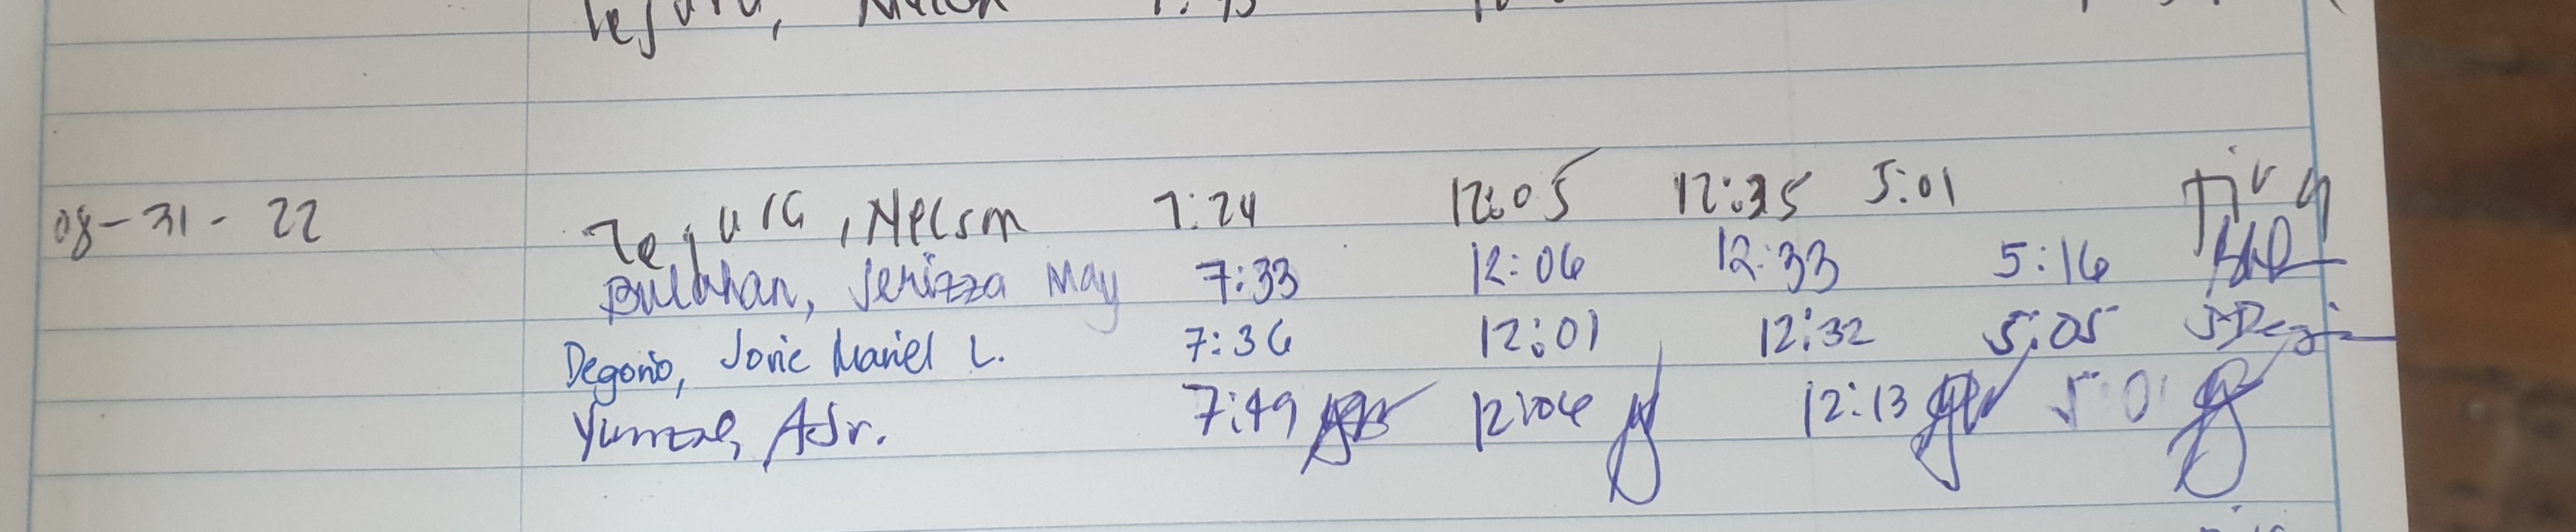 08-31-22 Tejura, Nelson 7:24 12:05 12:35 5:01
Bulahan, Jerizza May 7:33 12:06 12:33 5:16
Degorio, Jovie Mariel L. 7:36 12:01 12:32 5:05
A Jr. 7:49 12:06 12:13 5:01